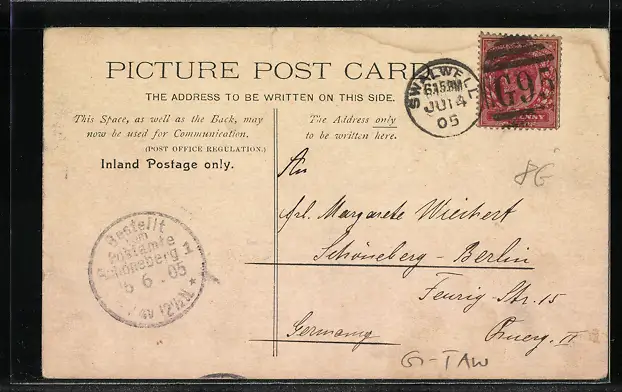 PICTURE POST CARD
THE ADDRESS TO BE WRITTEN ON THIS SIDE.
This Space, as well as the Back, may
now be used for Communication.
(POST OFFICE REGULATION.)
Inland Postage only.
The Address only
to be written here.
SWALWELL
JU 14
05
G93
PENNY
8G
An
frl. Margarete Wiechert
Schöneberg - Berlin
Feurig Str. 15
Germany
II
Bestellt
vom
Postamte
Schöneberg 1
6.05
12¼N
G-TAW